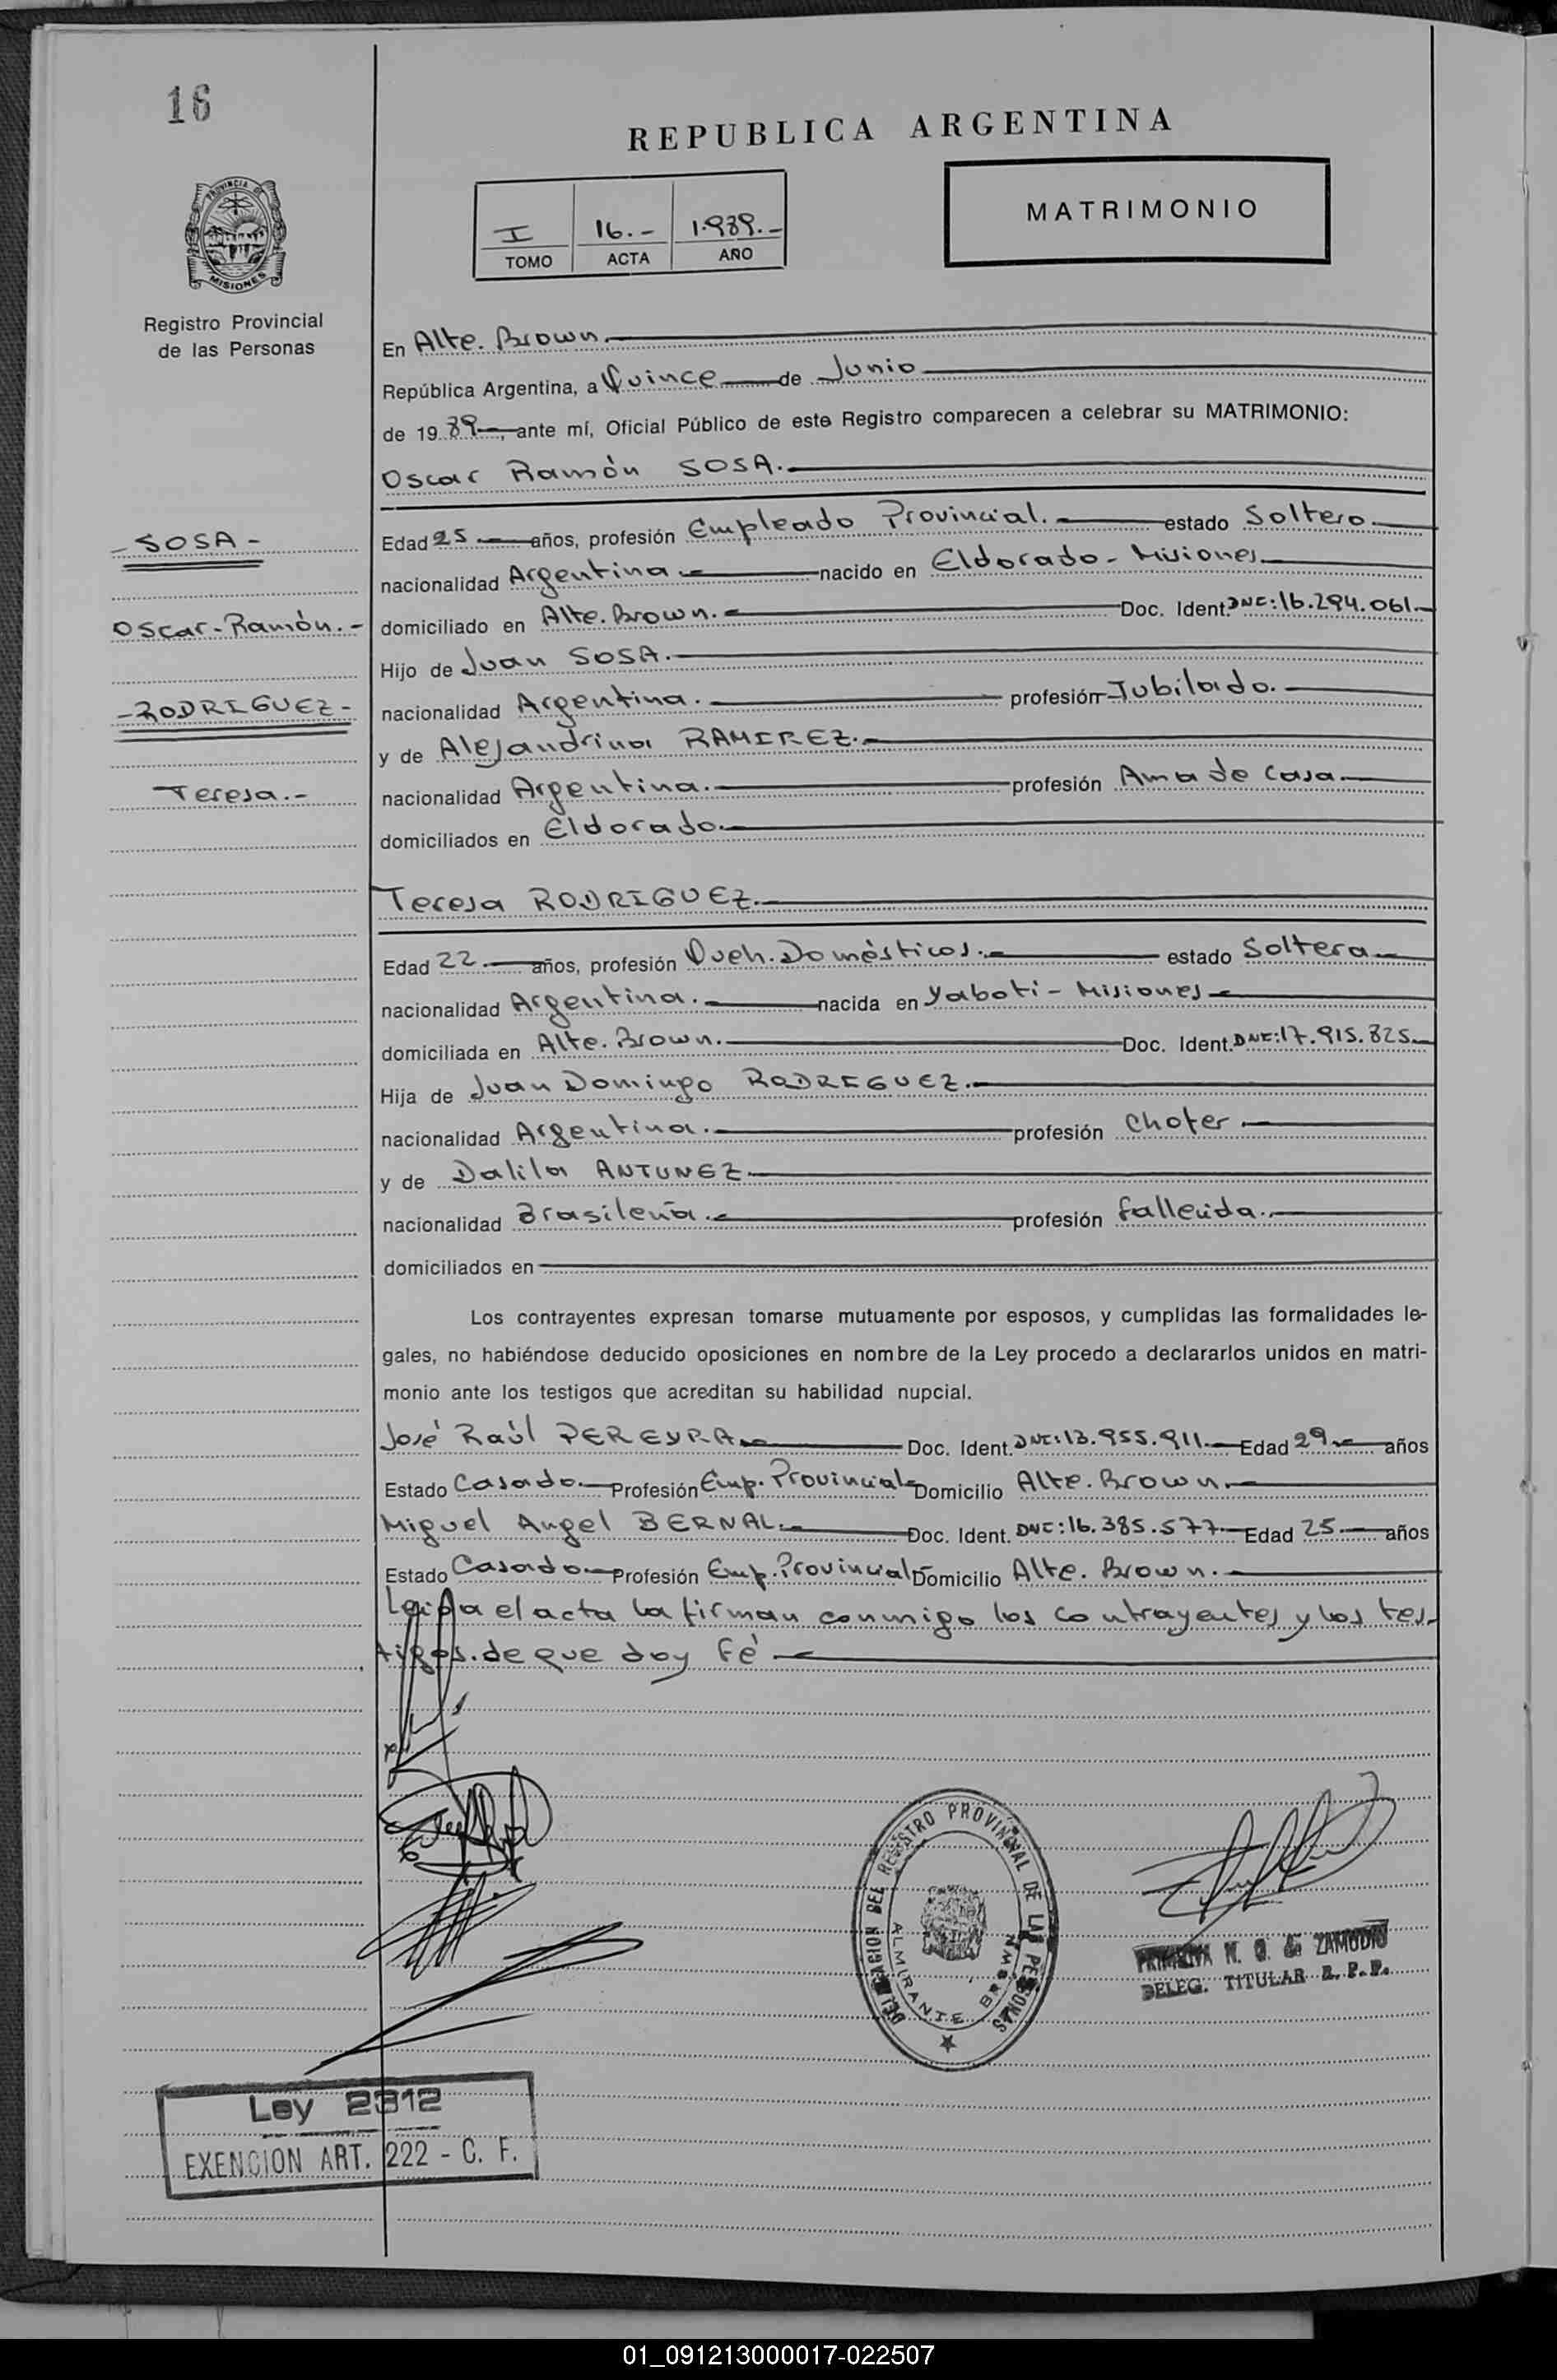 16
REPUBLICA ARGENTINA
PROVINCIA DE
MISIONES
I 16.- 1.989.-
TOMO ACTA AÑO
MATRIMONIO
Registro Provincial
de las Personas
En Alte. Brown.
República Argentina, a Quince de Junio
de 1989, ante mí, Oficial Público de este Registro comparecen a celebrar su MATRIMONIO:
Oscar Ramón SOSA.
- SOSA -
Edad 25.- años, profesión Empleado Provincial. estado Soltero.
nacionalidad Argentina nacido en Eldorado - Misiones
Oscar-Ramón.-
domiciliado en Alte. Brown. Doc. Ident. DNI: 16.294.061.
Hijo de Juan SOSA.
- RODRIGUEZ -
nacionalidad Argentina. profesión Jubilado.
y de Alejandrina RAMIREZ.
Teresa.-
nacionalidad Argentina. profesión Ama de Casa
domiciliados en Eldorado.
Teresa RODRIGUEZ.
Edad 22.- años, profesión Queh. Domésticos. estado Soltera
nacionalidad Argentina. nacida en Yaboti - Misiones
domiciliada en Alte. Brown. Doc. Ident. DNI: 17.915.825
Hija de Juan Domingo RODRIGUEZ.
nacionalidad Argentina. profesión Chofer
y de Dalila ANTUNEZ
nacionalidad Brasileña. profesión fallecida.
domiciliados en
Los contrayentes expresan tomarse mutuamente por esposos, y cumplidas las formalidades le-
gales, no habiéndose deducido oposiciones en nombre de la Ley procedo a declararlos unidos en matri-
monio ante los testigos que acreditan su habilidad nupcial.
José Raúl PEREYRA Doc. Ident. DNI: 13.955.911. Edad 29 años
Estado Casado. Profesión Emp. Provincial Domicilio Alte. Brown.
Miguel Angel BERNAL. Doc. Ident. DNI: 16.385.577 Edad 25. años
Estado Casado Profesión Emp. Provincial Domicilio Alte. Brown.
Leida el acta la firman conmigo los contrayentes y los tes-
tigos. de que doy fé
DELEGACION DEL REGISTRO PROVINCIAL DE LAS PERSONAS
ALMIRANTE BROWN
PRIMITIVA N. G. de ZAMUDIO
DELEG. TITULAR R. P. P.
Ley 2312
EXENCION ART. 222 - C. F.
01_091213000017-022507